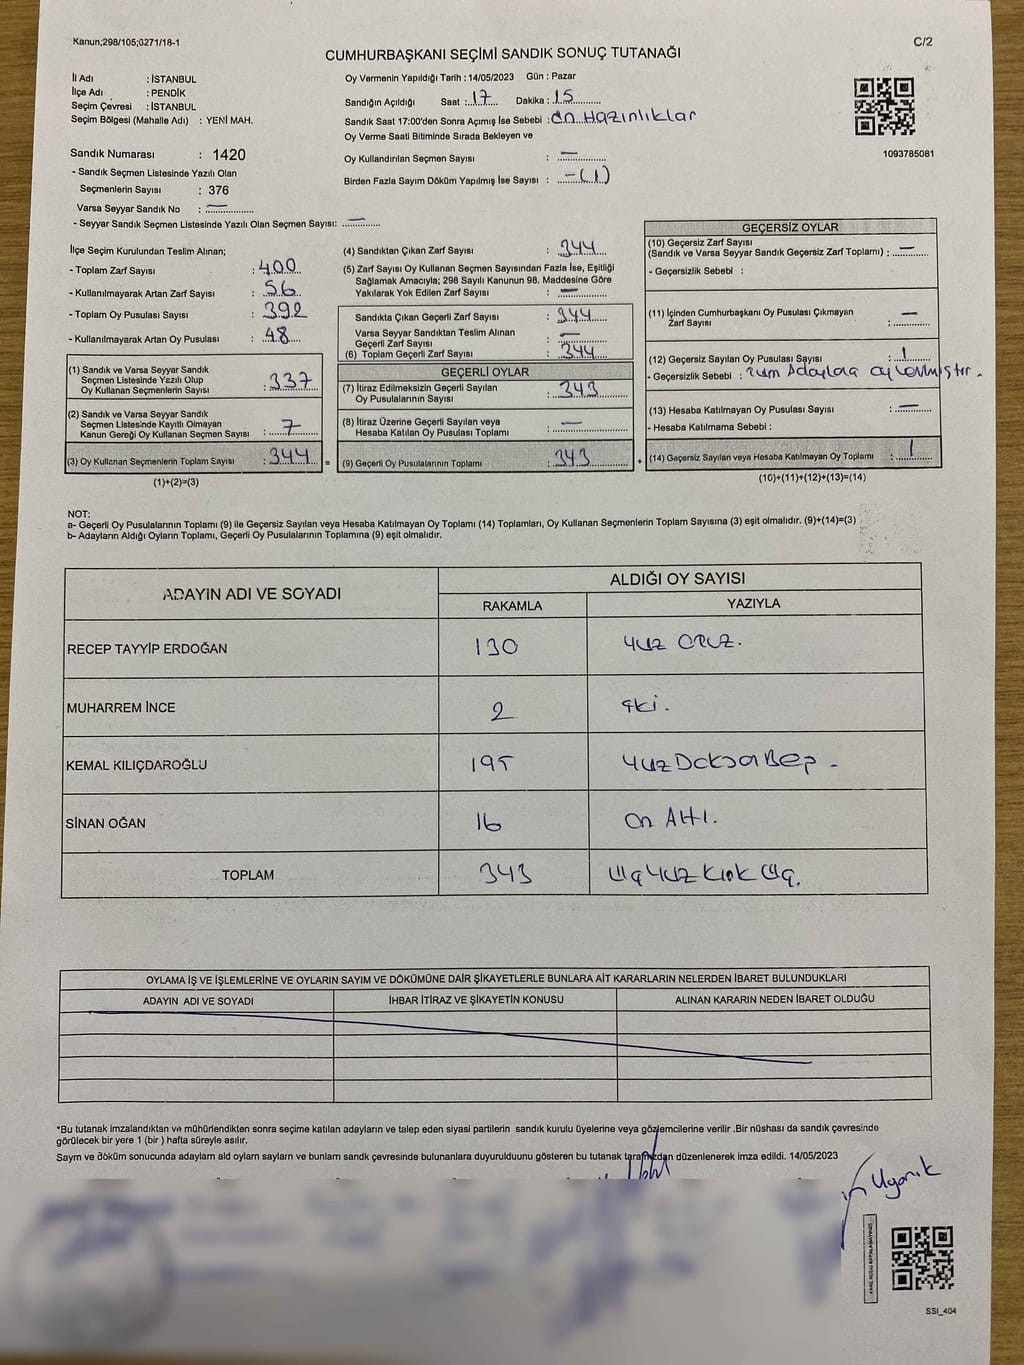 Kanun;298/105;6271/18-1
C/2
CUMHURBAŞKANI SEÇİMİ SANDIK SONUÇ TUTANAĞI
İl Adı : İSTANBUL
İlçe Adı : PENDİK
Seçim Çevresi : İSTANBUL
Seçim Bölgesi (Mahalle Adı) : YENİ MAH.
Sandık Numarası : 1420
- Sandık Seçmen Listesinde Yazılı Olan
Seçmenlerin Sayısı : 376
Varsa Seyyar Sandık No : —
- Seyyar Sandık Seçmen Listesinde Yazılı Olan Seçmen Sayısı: —
Oy Vermenin Yapıldığı Tarih : 14/05/2023 Gün : Pazar
Sandığın Açıldığı Saat : 17 Dakika : 15
Sandık Saat 17:00'den Sonra Açımış İse Sebebi : Ön Hazırlıklar
Oy Verme Saati Bitiminde Sırada Bekleyen ve
Oy Kullandırılan Seçmen Sayısı : —
Birden Fazla Sayım Döküm Yapılmış İse Sayısı : -(1)
1093785081
İlçe Seçim Kurulundan Teslim Alınan;
- Toplam Zarf Sayısı : 400
- Kullanılmayarak Artan Zarf Sayısı : 56
- Toplam Oy Pusulası Sayısı : 392
- Kullanılmayarak Artan Oy Pusulası : 48
(1) Sandık ve Varsa Seyyar Sandık
Seçmen Listesinde Yazılı Olup
Oy Kullanan Seçmenlerin Sayısı : 337
(2) Sandık ve Varsa Seyyar Sandık
Seçmen Listesinde Kayıtlı Olmayan
Kanun Gereği Oy Kullanan Seçmen Sayısı : 7
(3) Oy Kullanan Seçmenlerin Toplam Sayısı : 344
(1)+(2)=(3)
(4) Sandıktan Çıkan Zarf Sayısı : 344
(5) Zarf Sayısı Oy Kullanan Seçmen Sayısından Fazla İse, Eşitliği
Sağlamak Amacıyla; 298 Sayılı Kanunun 98. Maddesine Göre
Yakılarak Yok Edilen Zarf Sayısı : —
Sandıkta Çıkan Geçerli Zarf Sayısı : 344
Varsa Seyyar Sandıktan Teslim Alınan
Geçerli Zarf Sayısı : —
(6) Toplam Geçerli Zarf Sayısı : 344
GEÇERLİ OYLAR
(7) İtiraz Edilmeksizin Geçerli Sayılan
Oy Pusulalarının Sayısı : 343
(8) İtiraz Üzerine Geçerli Sayılan veya
Hesaba Katılan Oy Pusulası Toplamı : —
(9) Geçerli Oy Pusulalarının Toplamı : 343
GEÇERSİZ OYLAR
(10) Geçersiz Zarf Sayısı
(Sandık ve Varsa Seyyar Sandık Geçersiz Zarf Toplamı) : —
- Geçersizlik Sebebi :
(11) İçinden Cumhurbaşkanı Oy Pusulası Çıkmayan
Zarf Sayısı : —
(12) Geçersiz Sayılan Oy Pusulası Sayısı : 1
- Geçersizlik Sebebi : Tüm Adaylara oy vermiştir.
(13) Hesaba Katılmayan Oy Pusulası Sayısı : —
- Hesaba Katılmama Sebebi :
(14) Geçersiz Sayılan veya Hesaba Katılmayan Oy Toplamı : 1
(10)+(11)+(12)+(13)=(14)
NOT:
a- Geçerli Oy Pusulalarının Toplamı (9) ile Geçersiz Sayılan veya Hesaba Katılmayan Oy Toplamı (14) Toplamları, Oy Kullanan Seçmenlerin Toplam Sayısına (3) eşit olmalıdır. (9)+(14)=(3)
b- Adayların Aldığı Oyların Toplamı, Geçerli Oy Pusulalarının Toplamına (9) eşit olmalıdır.
ADAYIN ADI VE SOYADI
ALDIĞI OY SAYISI
RAKAMLA YAZIYLA
RECEP TAYYİP ERDOĞAN 130 yüz otuz.
MUHARREM İNCE 2 iki.
KEMAL KILIÇDAROĞLU 195 yüz Doksan Beş -
SİNAN OĞAN 16 on Altı.
TOPLAM 343 Üç yüz Kırk Üç.
OYLAMA İŞ VE İŞLEMLERİNE VE OYLARIN SAYIM VE DÖKÜMÜNE DAİR ŞİKAYETLERLE BUNLARA AİT KARARLARIN NELERDEN İBARET BULUNDUKLARI
ADAYIN ADI VE SOYADI İHBAR İTİRAZ VE ŞİKAYETİN KONUSU ALINAN KARARIN NEDEN İBARET OLDUĞU
*Bu tutanak imzalandıktan ve mühürlendikten sonra seçime katılan adayların ve talep eden siyasi partilerin sandık kurulu üyelerine veya gözlemcilerine verilir .Bir nüshası da sandık çevresinde
görülecek bir yere 1 (bir ) hafta süreyle asılır.
Saym ve döküm sonucunda adaylarm ald oylarm saylarn ve bunlarn sandk çevresinde bulunanlara duyurulduunu gösteren bu tutanak tarafmzdan düzenlenerek imza edildi. 14/05/2023
Uyanık
SSI_404